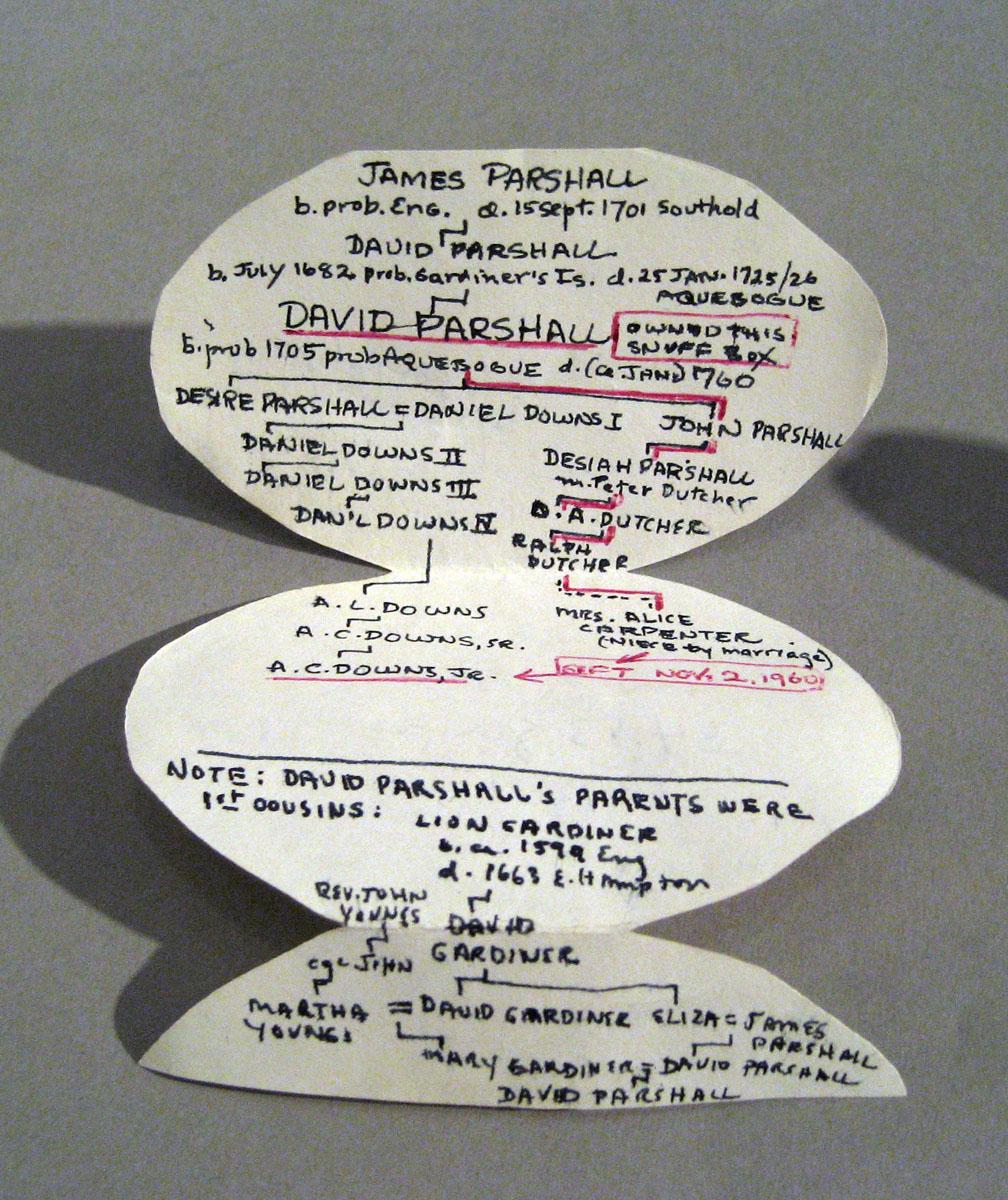 JAMES PARSHALL
b. prob. Eng. d. 15 Sept. 1701 Southold
DAVID PARSHALL
b. July 1682 prob. Gardiner's Is. d. 25 JAN. 1725/26
AQUEBOGUE
DAVID PARSHALL
OWNED THIS
SNUFF BOX
b. prob 1705 prob AQUEBOGUE d. (ca JAN) 1760
DESIRE PARSHALL = DANIEL DOWNS I
JOHN PARSHALL
DANIEL DOWNS II
DESIAH PARSHALL
m. Peter Dutcher
DANIEL DOWNS III
DAN'L DOWNS IV
D. A. DUTCHER
RALPH
DUTCHER
A. L. DOWNS
MRS. ALICE
CARPENTER
(niece by marriage)
A. C. DOWNS, SR.
A. C. DOWNS, JR.
GIFT NOV. 2, 1960
NOTE: DAVID PARSHALL'S PARENTS WERE
1st COUSINS:
LION GARDINER
b. ca. 1599 Eng
d. 1663 E. Hampton
REV. JOHN
YOUNGS
DAVID
GARDINER
JOHN
MARTHA
YOUNGS
= DAVID GARDINER
ELIZA = JAMES
PARSHALL
MARY GARDINER = DAVID PARSHALL
DAVID PARSHALL